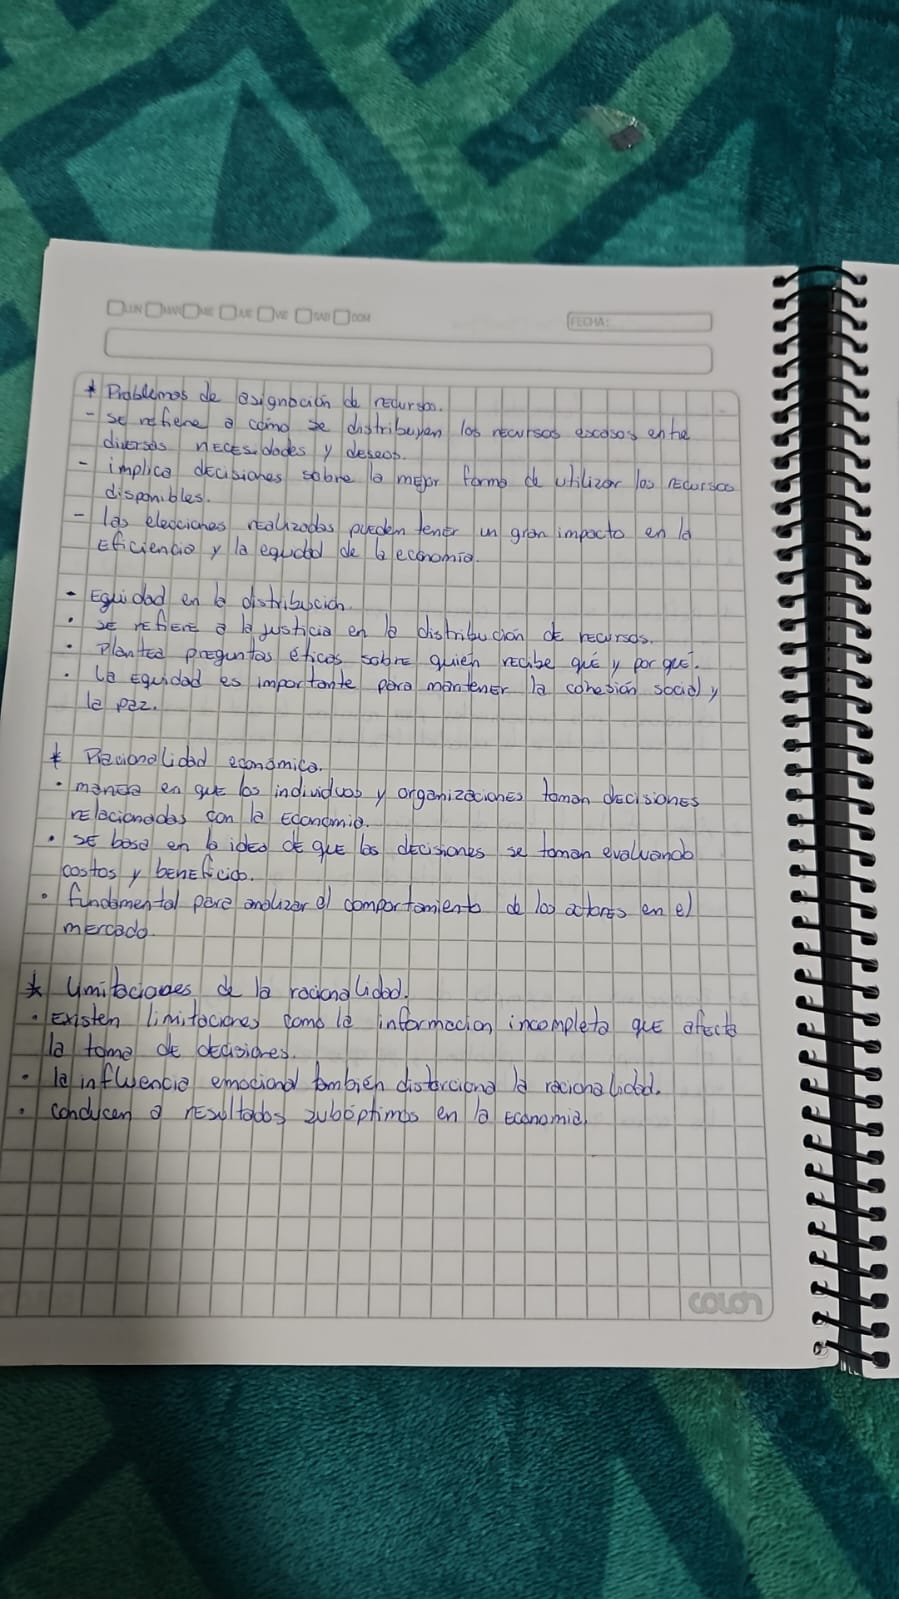 LUN MAR MIE JUE VIE SAB DOM FECHA:
* Problemas de asignación de recursos.
- se refiere a cómo se distribuyen los recursos escasos entre
diversas necesidades y deseos.
- implica decisiones sobre la mejor forma de utilizar los recursos
disponibles.
- las elecciones realizadas pueden tener un gran impacto en la
Eficiencia y la equidad de la economía.
- Equidad en la distribución.
· se refiere a la justicia en la distribución de recursos.
· Plantea preguntas éticas sobre quién recibe qué y por qué.
· La Equidad es importante para mantener la cohesión social y
la paz.
* Racionalidad económica.
· manera en que los individuos y organizaciones toman decisiones
relacionadas con la Economía.
· se basa en la idea de que las decisiones se toman evaluando
costos y beneficios.
· fundamental para analizar el comportamiento de los actores en el
mercado.
* Limitaciones de la racionalidad.
· Existen limitaciones como la informacion incompleta que afecta
la toma de decisiones.
· la influencia emocional también distorciona la racionalidad.
· conducen a resultados subóptimos en la Economia.
colon